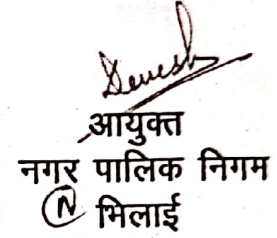 आयुक्त
नगर पालिक निगम
N भिलाई